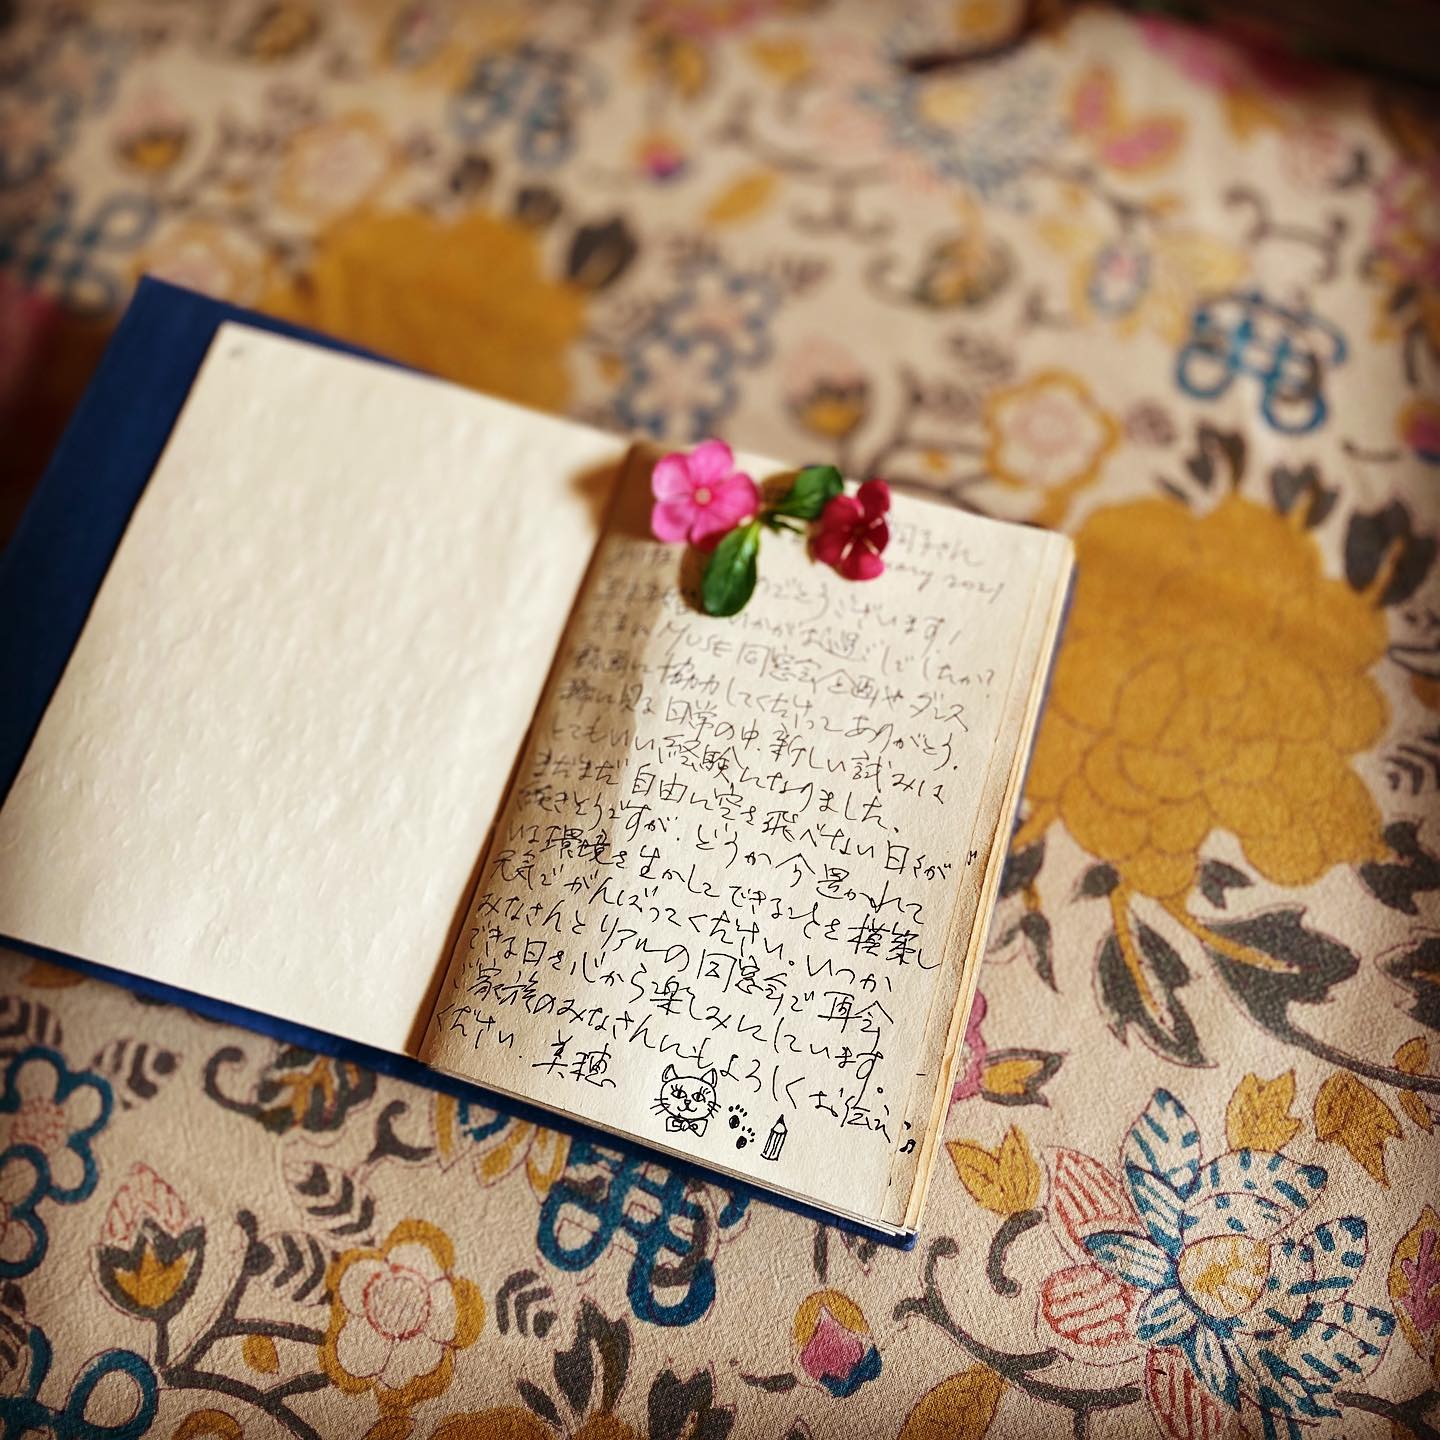 子さん
ary 2021
めでとうございます!
いかがお過ごしでしたか?
MUSE同窓会企画やダンス
動画に協力してくださってありがとう。
日常の中、新しい試みは
とてもいい経験になりました。
まだまだ自由に空を飛べない日々が
続きそうですが、どうか今置かれて
いる環境を生かしてできることを模索し
元気でがんばってください。いつか
みなさんとリアルの同窓会で再会
できる日を心から楽しみにしています。
ご家族のみなさんにもよろしくお伝え
ください。美穂